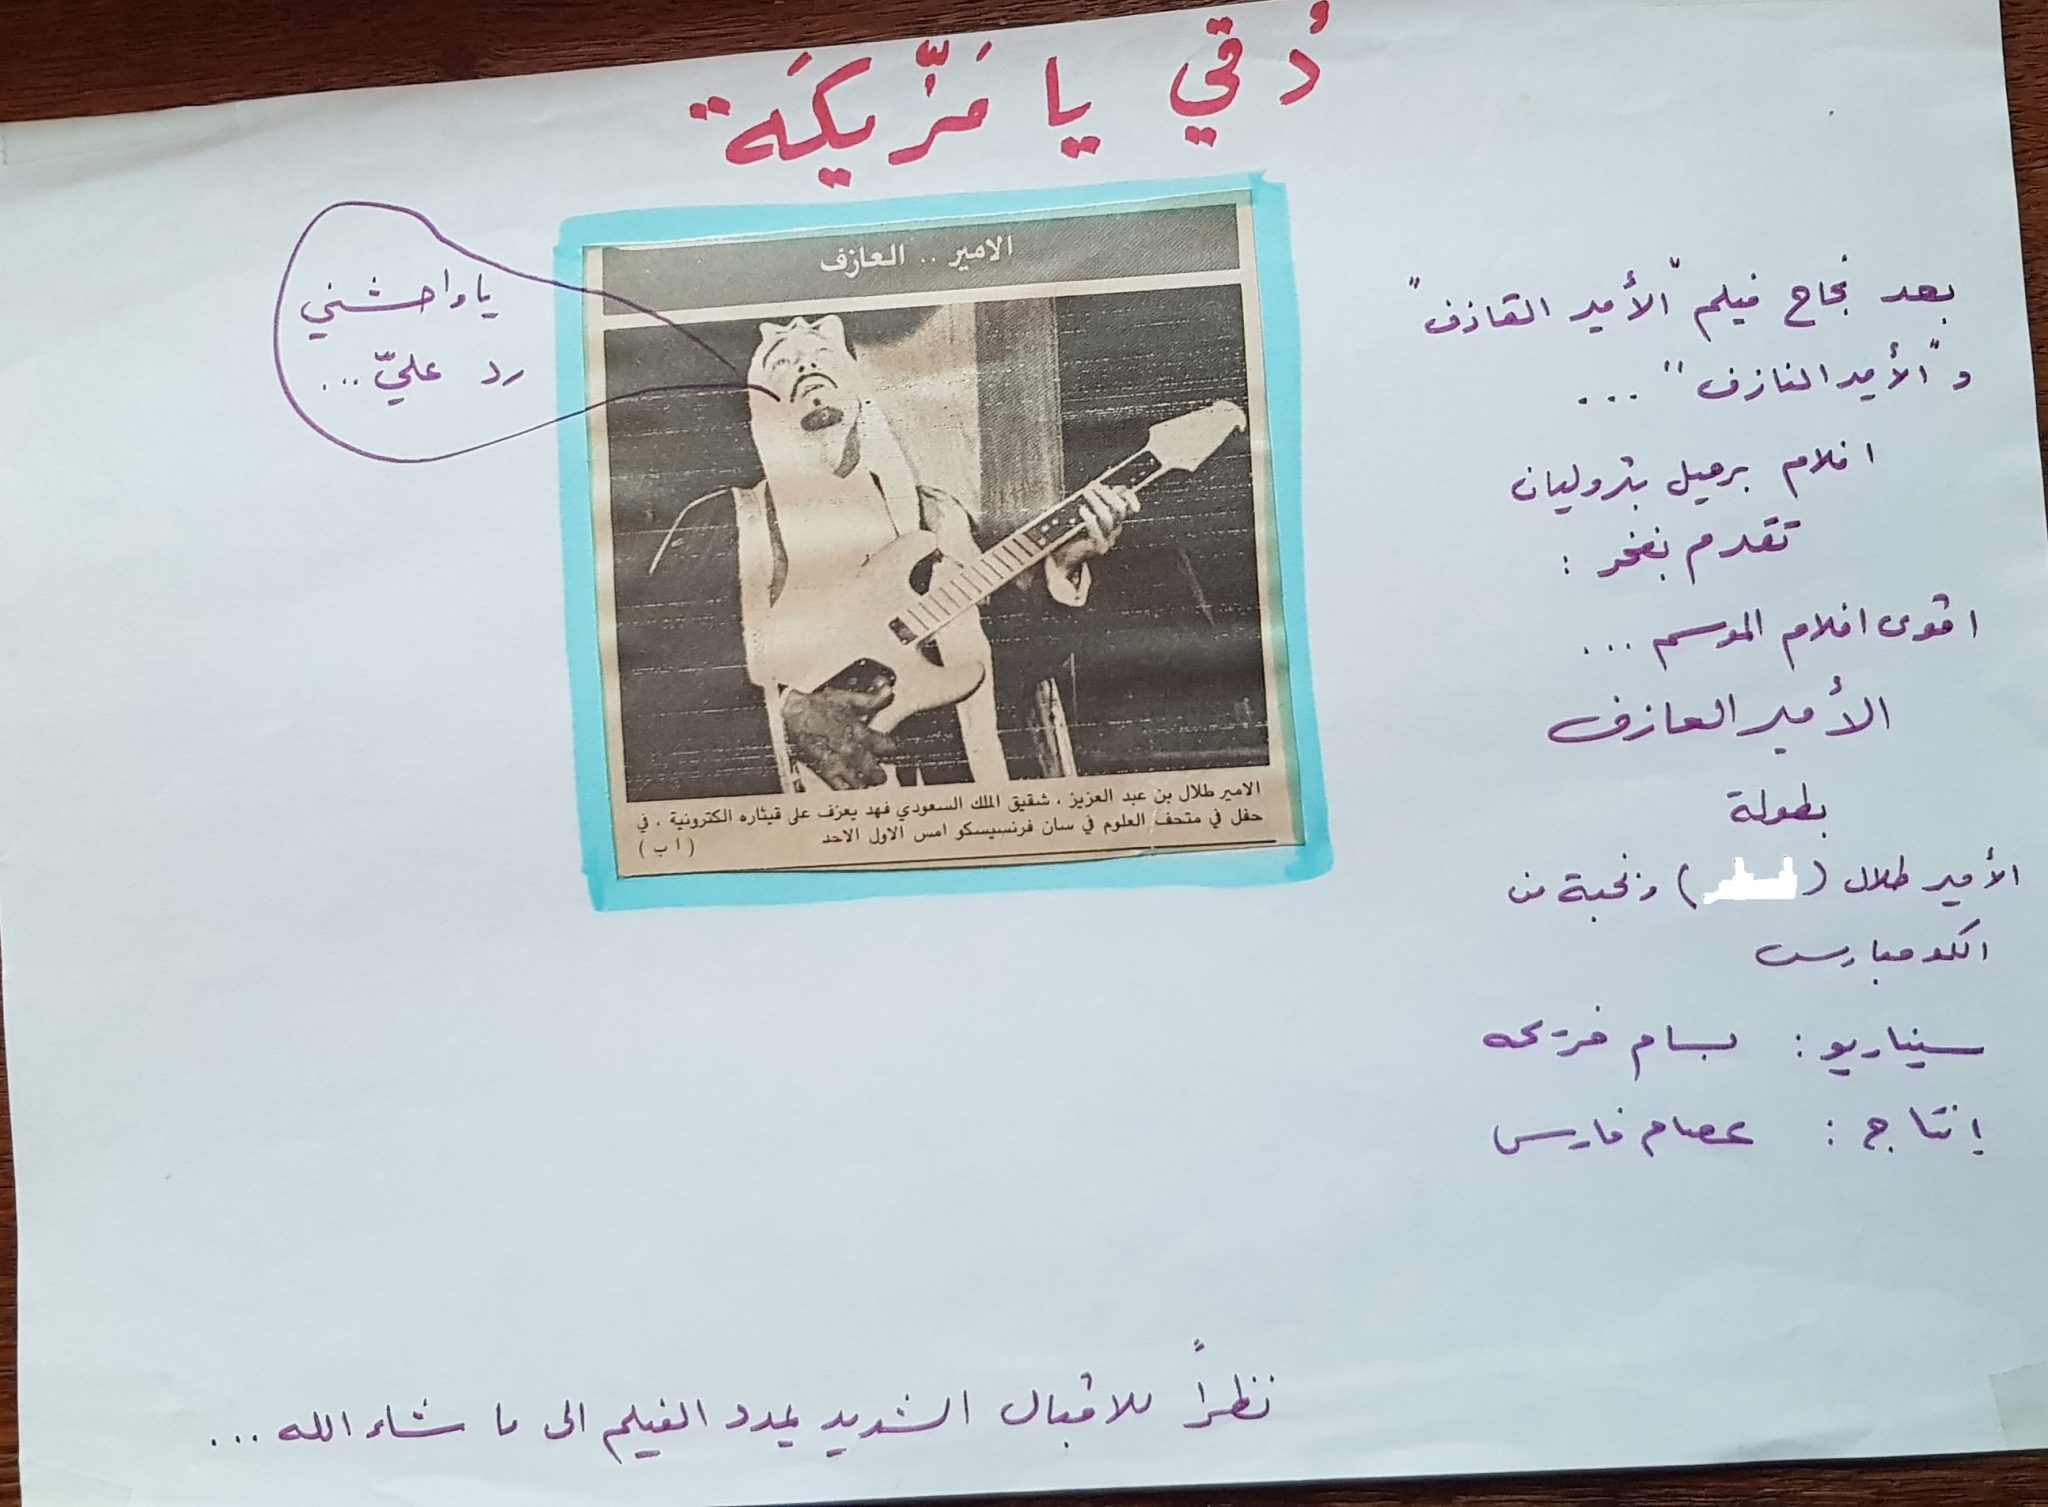 دُقي يا مَزّيكَة
يا واحشني
رد عليّ ...
الامير .. العازف
الامير طلال بن عبد العزيز ، شقيق الملك السعودي فهد يعزف على قيثاره الكترونية ، في
حفل في متحف العلوم في سان فرنسيسكو امس الاول الاحد
( ا ب )
بعد نجاح فيلم "الأمير القاذف"
و "الأمير النازف" ...
افلام برميل بتروليان
تقدم بفخر :
اقوى افلام الموسم ...
الأمير العازف
بطولة
الأمير طلال ( ) ونخبة من
الكومبارس
سيناريو : بسام فريحه
إنتاج : عصام فارس
نظراً للاقبال الشديد يمدد الفيلم الى ما شاء الله ...